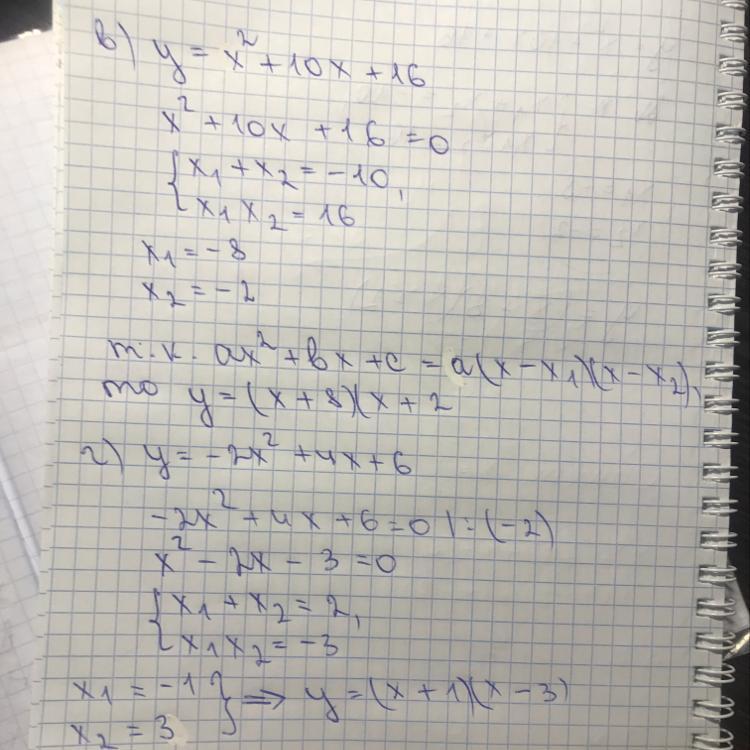 в) y = x² + 10x + 16
x² + 10x + 16 = 0
{ x₁ + x₂ = -10,
x₁ x₂ = 16
x₁ = -8
x₂ = -2
т.к. ax² + bx + c = a(x - x₁)(x - x₂),
то y = (x + 8)(x + 2
г) y = -2x² + 4x + 6
-2x² + 4x + 6 = 0 | : (-2)
x² - 2x - 3 = 0
{ x₁ + x₂ = 2,
x₁ x₂ = -3
x₁ = -1 } ⇒ y = (x + 1)(x - 3)
x₂ = 3